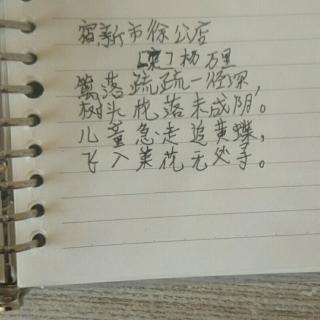 宿新市徐公店
[宋]杨万里
篱落疏疏一径深,
树头花落未成阴。
儿童急走追黄蝶,
飞入菜花无处寻。